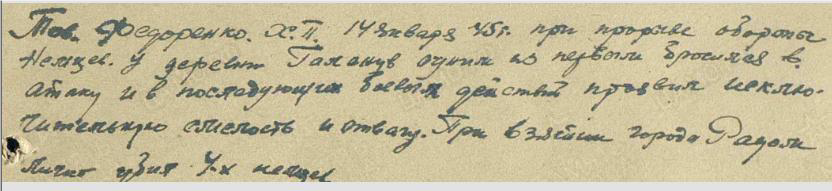 Тов. Федоренко. Х.П. 14 января 45 г. при прорыве обороны
Немцев. у деревни Гаханув одним из первых бросился в
атаку и в последующих боевых действ проявил исклю-
чительную смелость и отвагу. При взятии города Радом
лично убил 4-х немцев